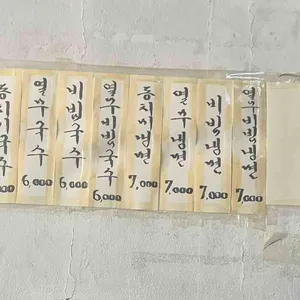 동치미국수
000
열무국수
6,000
비빔국수
6,000
열무비빔국수
6,000
동치미냉면
7,000
열무냉면
7,000
비빔냉면
7,000
열무비빔냉면
7,000